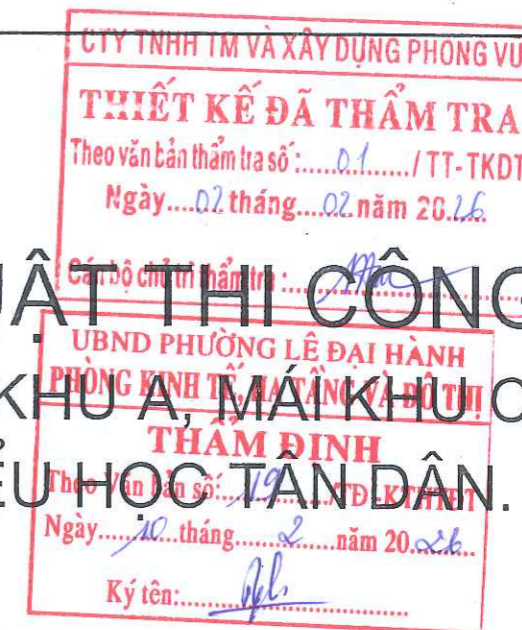 CTY TNHH TM VÀ XÂY DỰNG PHONG VU
THIẾT KẾ ĐÃ THẨM TRA
Theo văn bản thẩm tra số:.....01....../ TT-TKDT
Ngày....02 tháng....02 năm 2026
Cán bộ chủ trì thẩm tra :
UẬT THI CÔNG
UBND PHƯỜNG LÊ ĐẠI HÀNH
PHÒNG KINH TẾ, HẠ TẦNG VÀ ĐÔ THỊ
KHU A, MÁI KHU C
THẨM ĐỊNH
Theo Văn bản số:....19..../TĐ-KTHTĐT
ỂU HỌC TÂN DÂN.
Ngày....10...tháng....2....năm 20.26..
Ký tên: